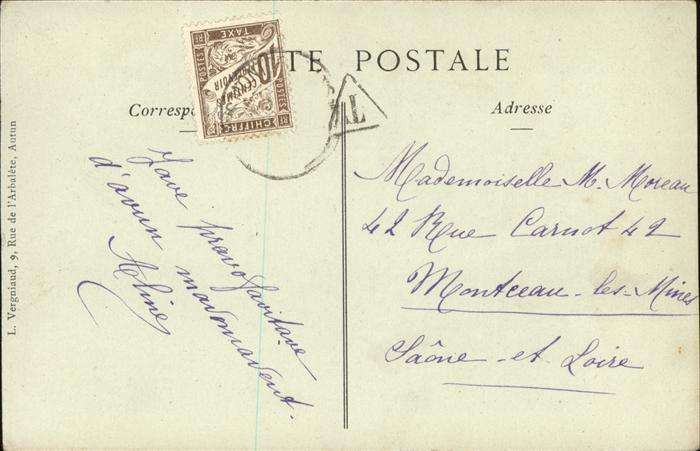 TE POSTALE
TAXE
POSTES
10
CENTIMES
A PERCEVOIR
CHIFFRE
Corresp
Adresse
T
Jave pravofavitave
d'avun mavomavent.
Aline
Mademoiselle M. Moreau
42 Rue Carnot 42
Montceau-les-Mines
Saône-et-Loire
L. Vergniaud, 9, Rue de l'Arbalète, Autun